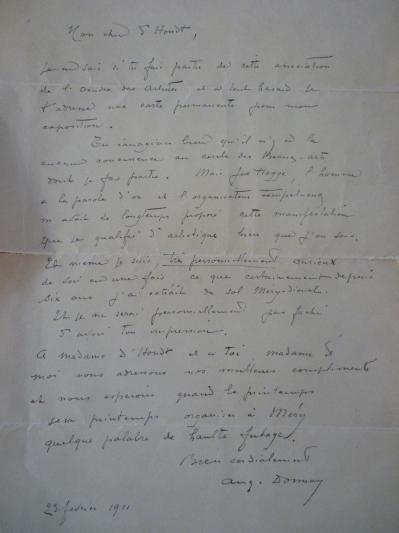 Mon cher D'Hondt,
Je ne sais si tu fais partie de cette association
de l'œuvre des Artistes et à tout hasard je
t'adresse une carte permanente pour mon
exposition.
Tu imagines bien qu'il n'y a là
aucune concurrence au cercle des Beaux-arts
dont je fais partie. Mais Jos Hogge, l'homme
a la parole d'or et l'organisateur
m'avait de longtemps proposé cette manifestation
que je qualifie d'artistique bien que j'en sois.
Et même je suis très personnellement curieux
de voir en une fois ce que certainement depuis
six ans j'ai extrait du sol Méry
Et je ne serai personnellement pas faché
d'avoir ton impression.
A madame D'Hondt et à toi, madame D
moi nous adressons nos meilleurs compliments
et nous espérons quand le printemps
sera printemps organiser à Méry
quelque palabre de haulte futaye.
Bien cordialement
Aug. Donnay
23 février 1911